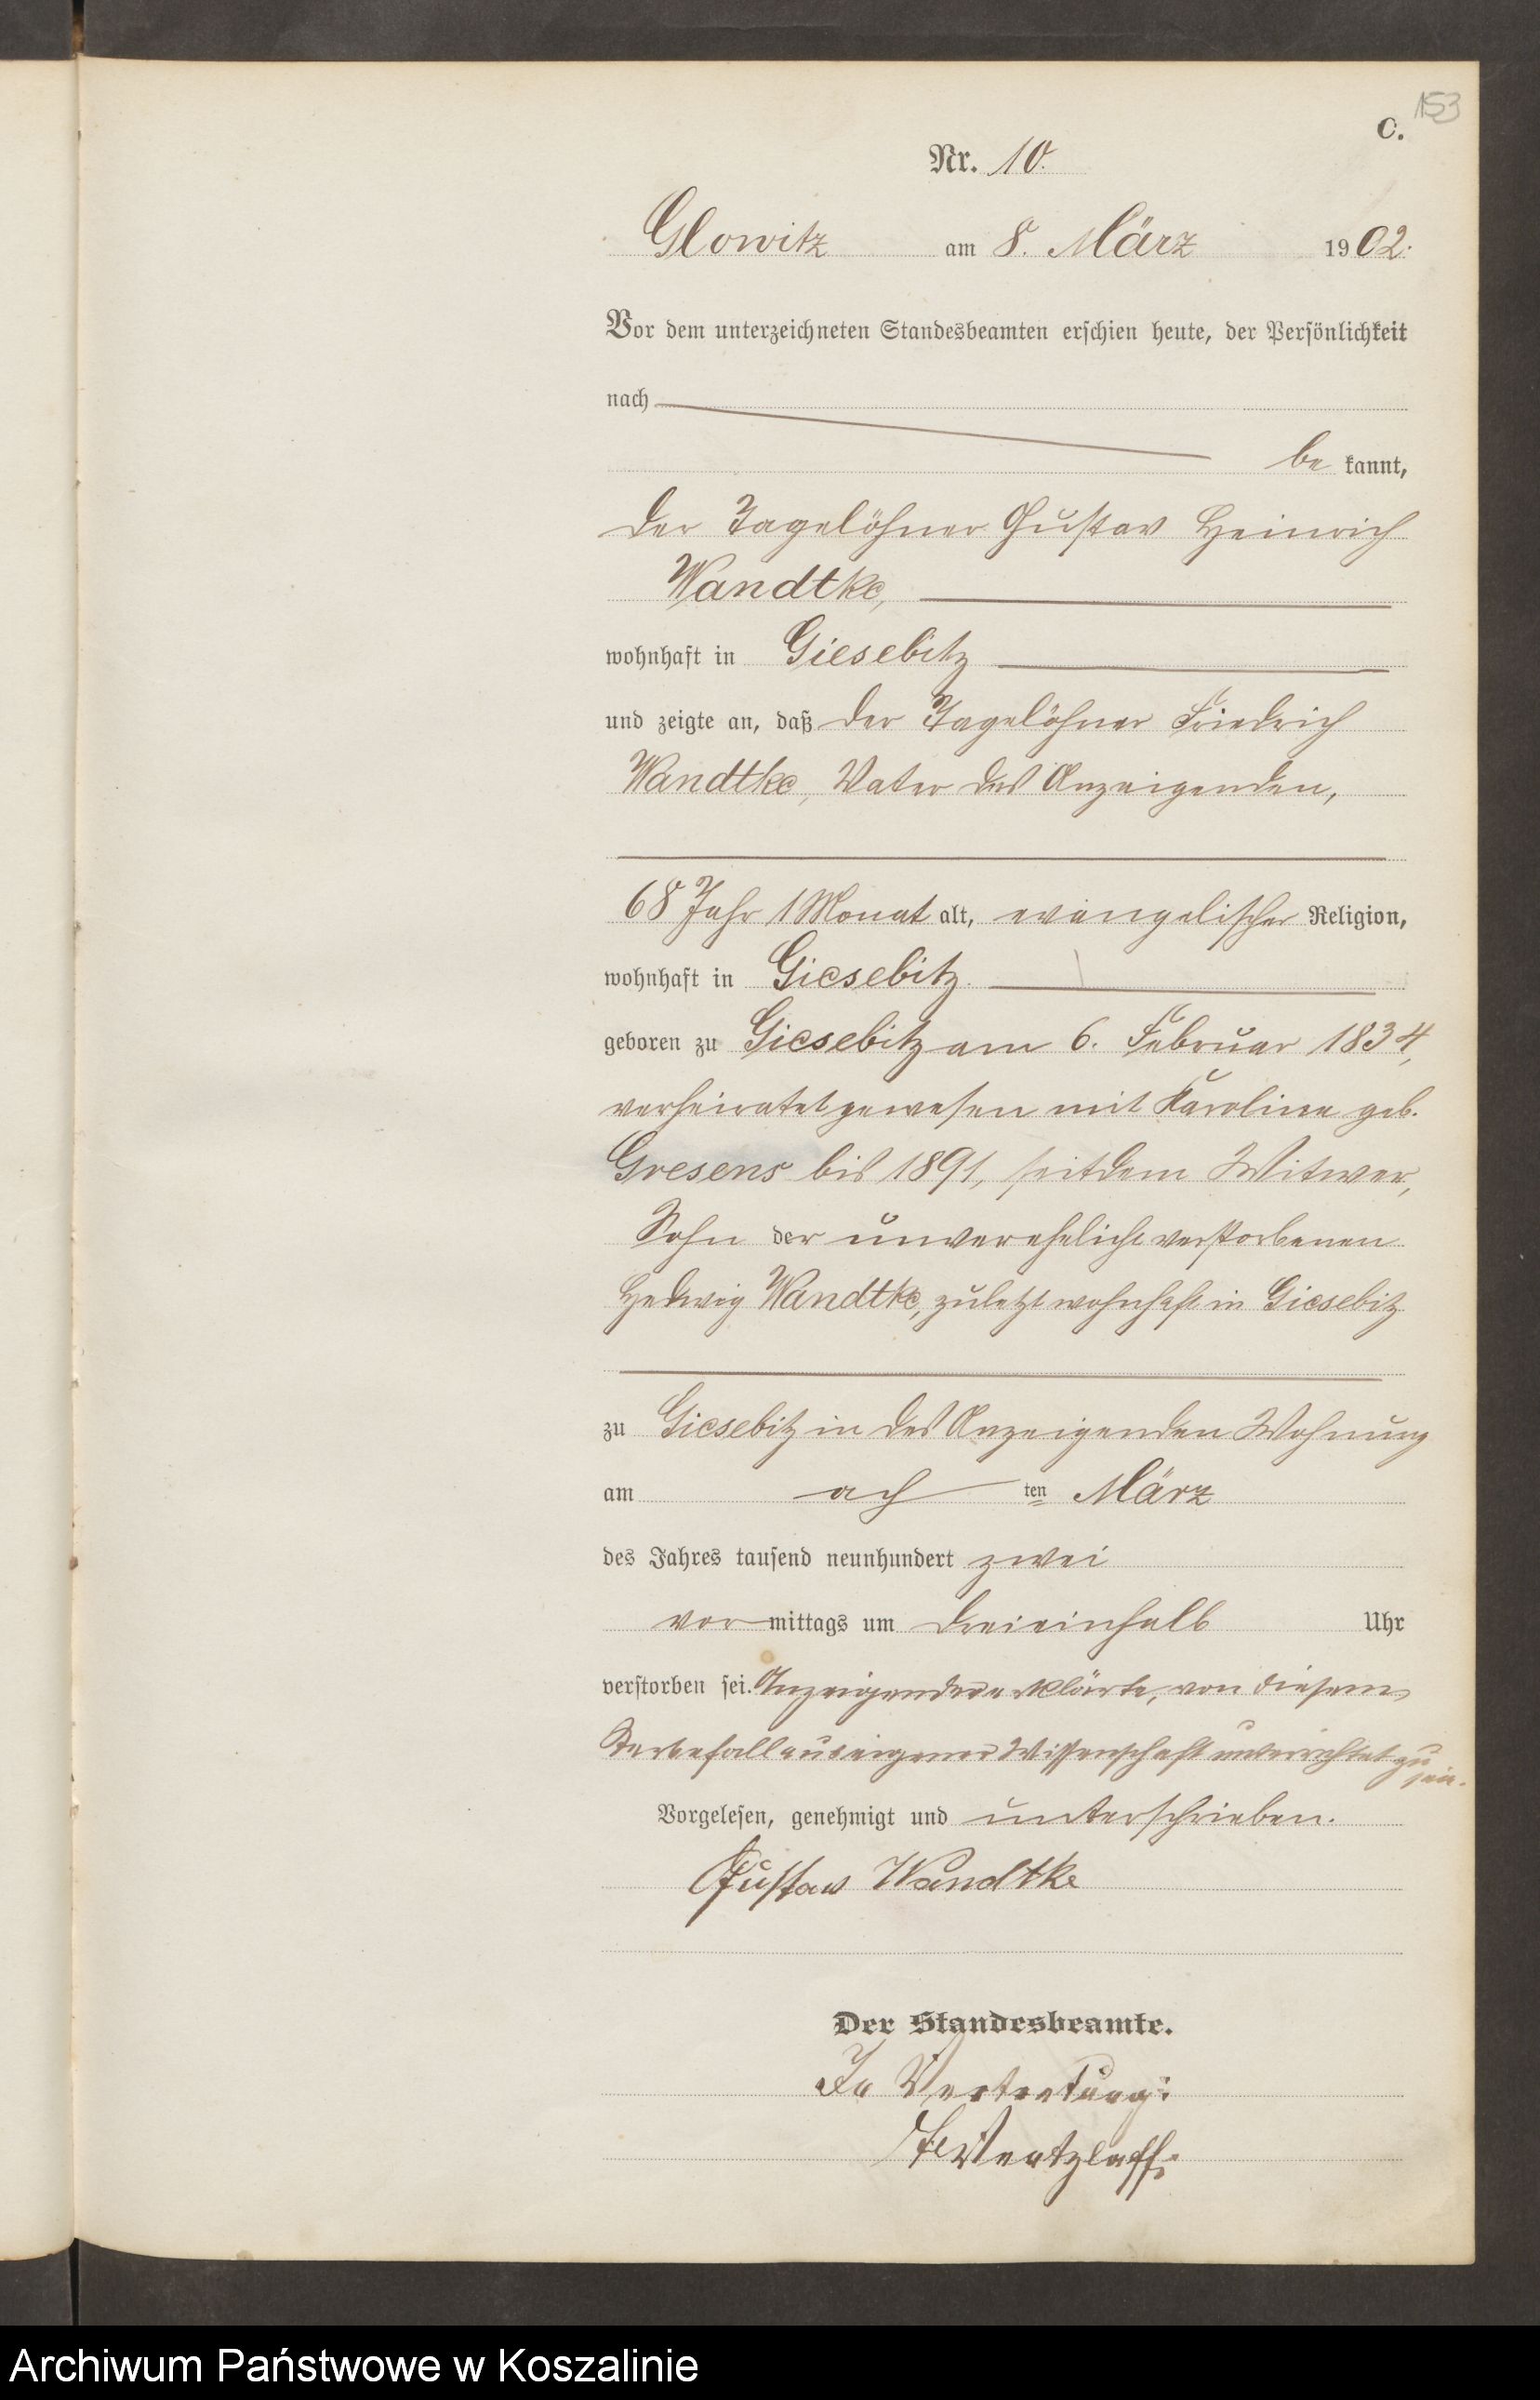 153
C.
Nr. 10.
Glowitz am 8. März 1902.
Vor dem unterzeichneten Standesbeamten erschien heute, der Persönlichkeit
nach
be kannt,
der Tagelöhner Gustav Heinrich
Wandtke,
wohnhaft in Giesebitz
und zeigte an, daß der Tagelöhner Friedrich
Wandtke, Vater des Anzeigenden,
68 Jahr 1 Monat alt, evangelischer Religion,
wohnhaft in Giesebitz.
geboren zu Giesebitz am 6. Februar 1834,
verheiratet gewesen mit Karoline geb.
Gresens bis 1891, seitdem Witwer,
Sohn der unverehelicht verstorbenen
Hedwig Wandtke, zuletzt wohnhaft in Giesebitz
zu Giesebitz in des Anzeigenden Wohnung
am ach ten März
des Jahres tausend neunhundert zwei
vor mittags um dreieinhalb Uhr
verstorben sei. Anzeigender erklärte, von diesem
Sterbefall aus eigener Wissenschaft unterrichtet zu
sein.
Vorgelesen, genehmigt und unterschrieben.
Gustav Wandtke
Der Standesbeamte.
In Vertretung:
Archiwum Państwowe w Koszalinie